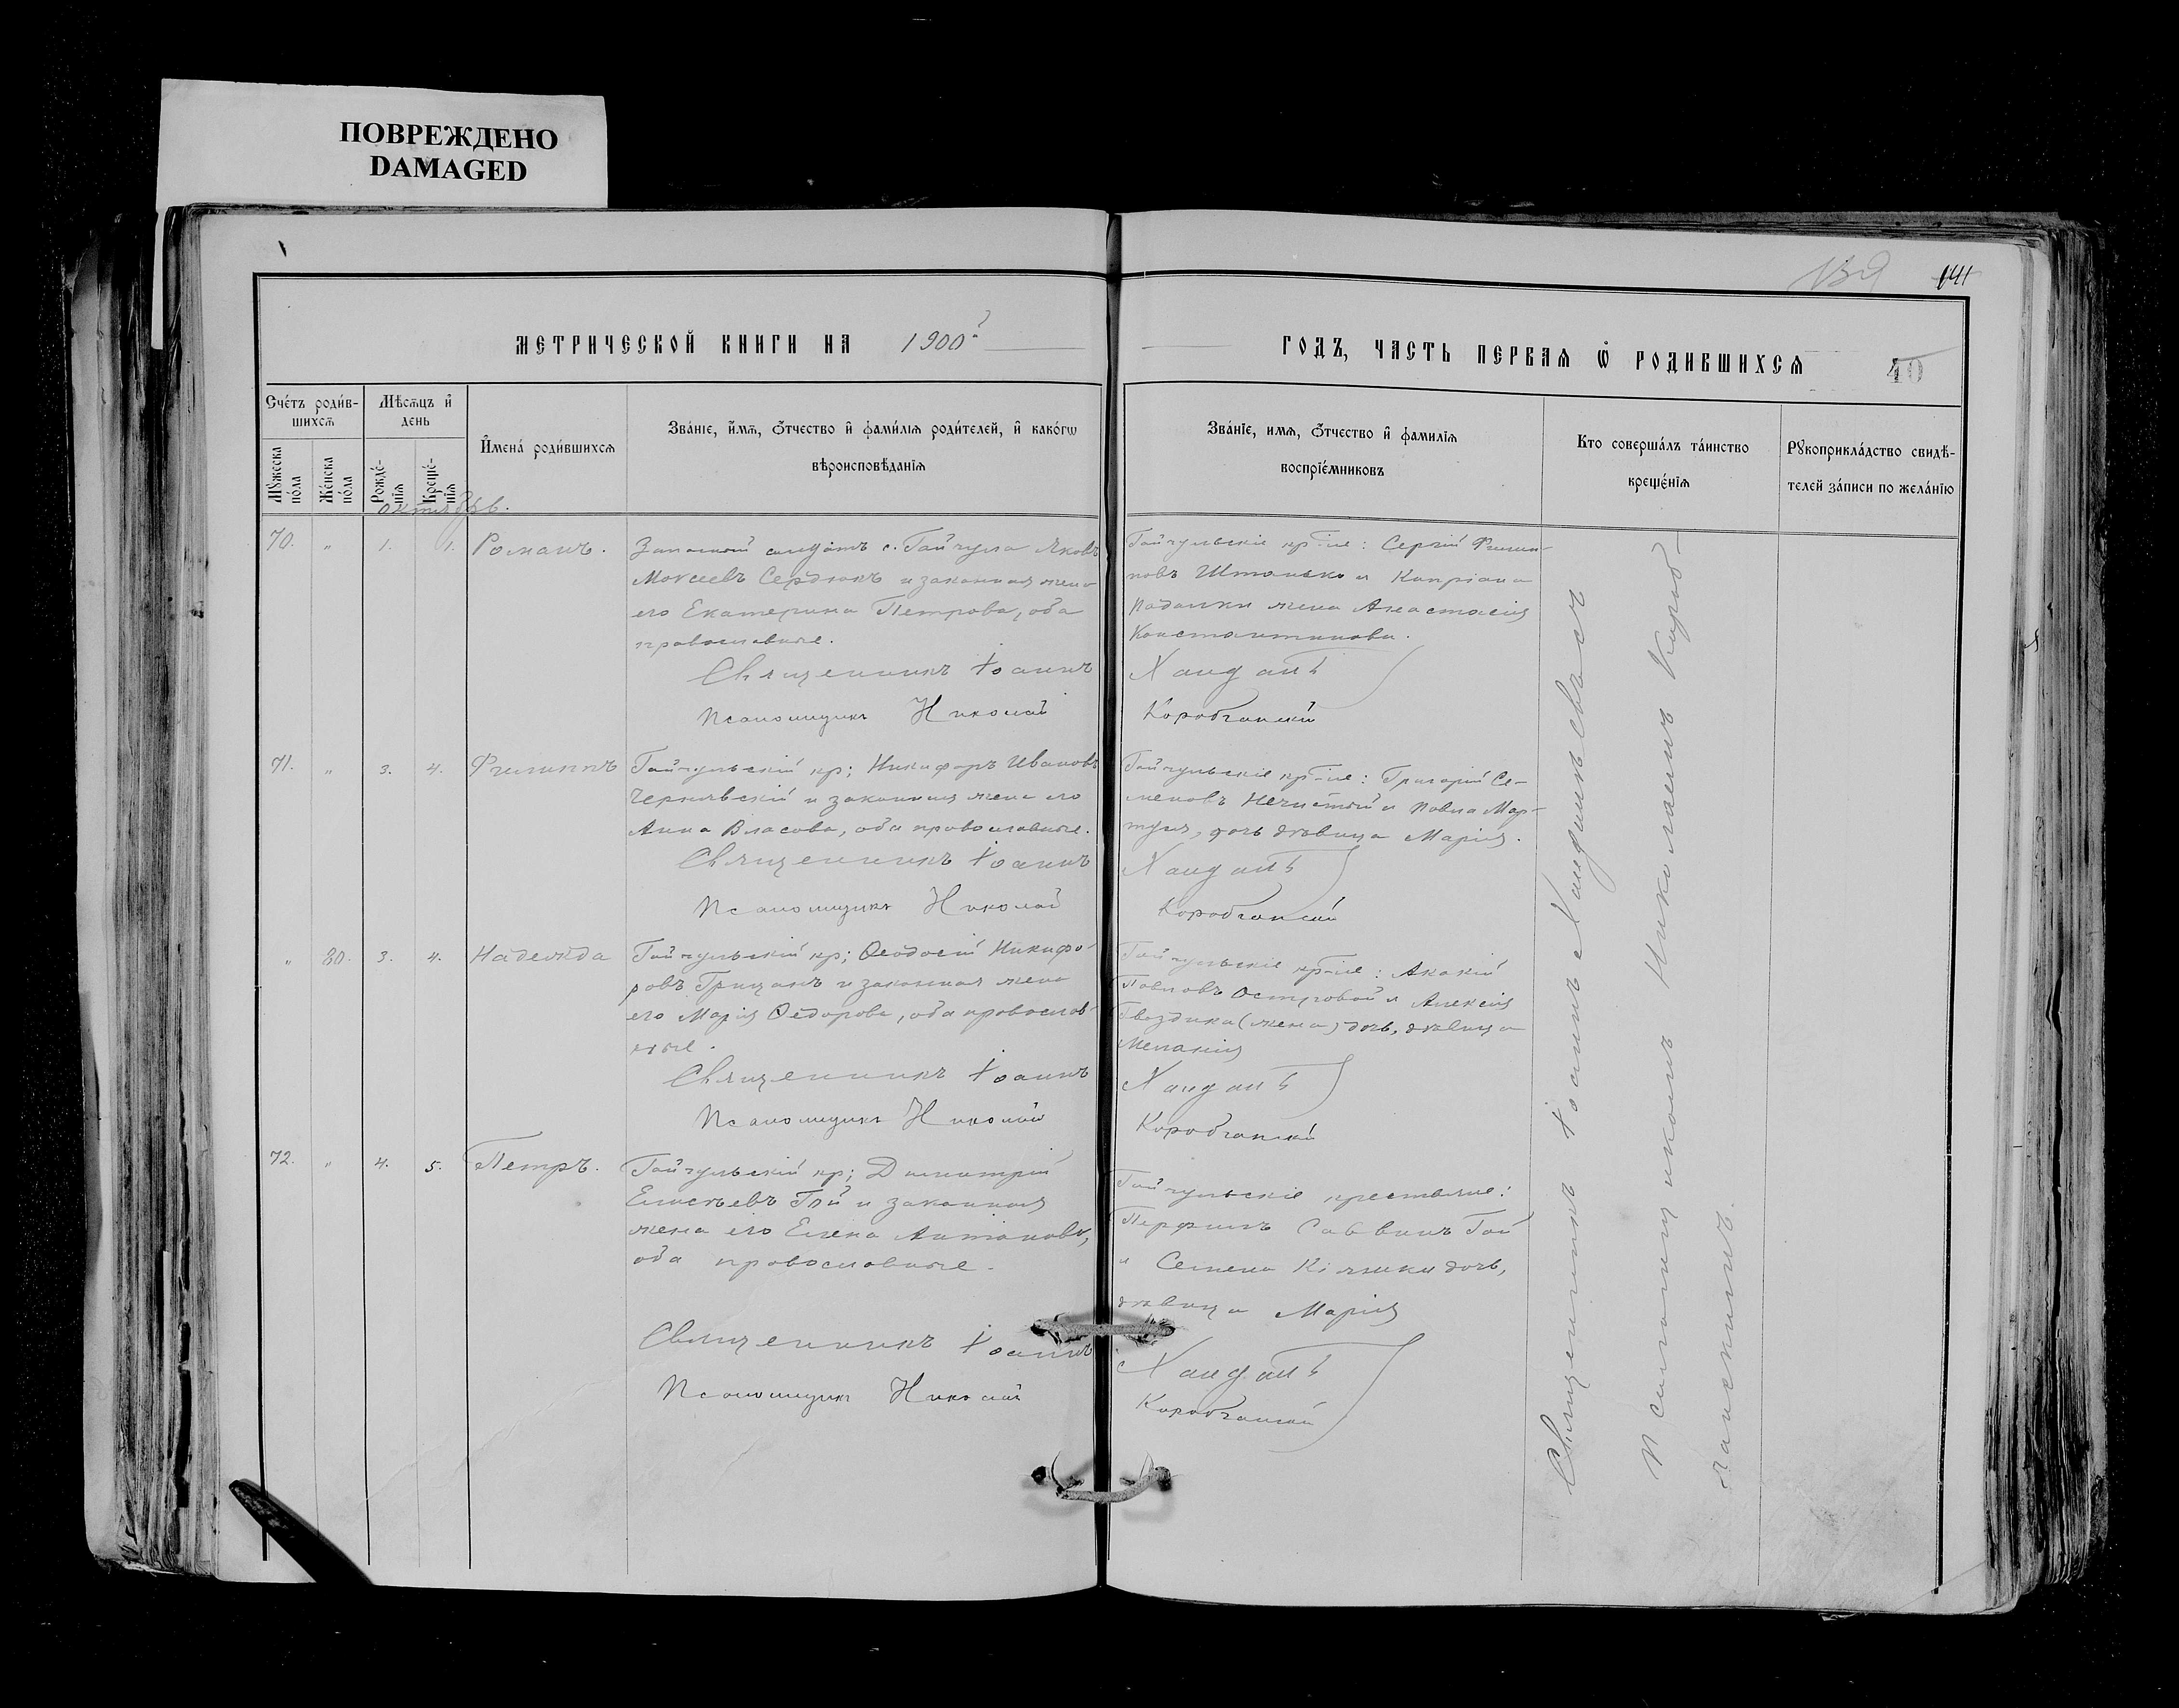 ПОВРЕЖДЕНО
DAMAGED
139 141
МЕТРИЧЕСКОЙ КНИГИ НА 1900й
ГОДЪ, ЧАСТЬ ПЕРВАЯ Ѡ РОДИВШИХСЯ
40
Счетъ родив-
шихся
Мѣсяцъ и
день
Мужеска
пола
Женска
пола
Рожде-
нія
Креще-
нія
Имена родившихся
Званіе, имя, отчество и фамилія родителей, и какогѡ
вѣроисповѣданія
Званіе, имя, отчество и фамилія
воспріемниковъ
Кто совершалъ таинство
крещенія
Рукоприкладство свидѣ-
телей записи по желанію
Октябрь.
70. " 1. 1. Романъ.
Запасный солдатъ с. Гайчула Яковъ
Моисеевъ Сердюкъ и законная жена
его Екатерина Петрова, оба
православные.
Священникъ Іоаннъ
Псаломщикъ Николай
Гайчульскіе кр-не: Сергій Филип-
повъ Штанько и Кипріана
Падалки жена Анастасія
Константинова.
Хандалѣ
Коробчанскій
71. " 3. 4. Филиппъ
Гайчульскій кр; Никифоръ Ивановъ
Чернявскій и законная жена его
Анна Власова, оба православные.
Священникъ Іоаннъ
Псаломщикъ Николай
Гайчульскіе кр-не: Григорій Се-
меновъ Нечистый и Павла Мар-
дочь дѣвица Марія.
Хандалѣ
Коробчанскій
" 30. 3. 4. Надежда
Гайчульскій кр; Ѳеодосій Никифо-
ровъ Грицанъ и законная жена
его Марія Ѳедорова, оба православ-
ные.
Священникъ Іоаннъ
Псаломщикъ Николай
Гайчульскіе кр-не: Акакій
Павловъ Островой и Алексія
Гвоздика (жена) дочь, дѣвица
Меланія
Хандалѣ
Коробчанскій
72. " 4. 5. Петръ.
Гайчульскій кр; Димитрій
Елисѣевъ Гай и законная
жена его Елена Антонова,
оба православные.
Священникъ Іоаннъ
Псаломщикъ Николай
Гайчульскіе крестьяне:
Перфилъ Саввинъ Гай
и Семена дочь,
дѣвица Марія
Хандалѣ
Коробчанскій
Священникъ Іоаннъ съ
Псаломщикомъ Николаемъ Короб-
чанскимъ.